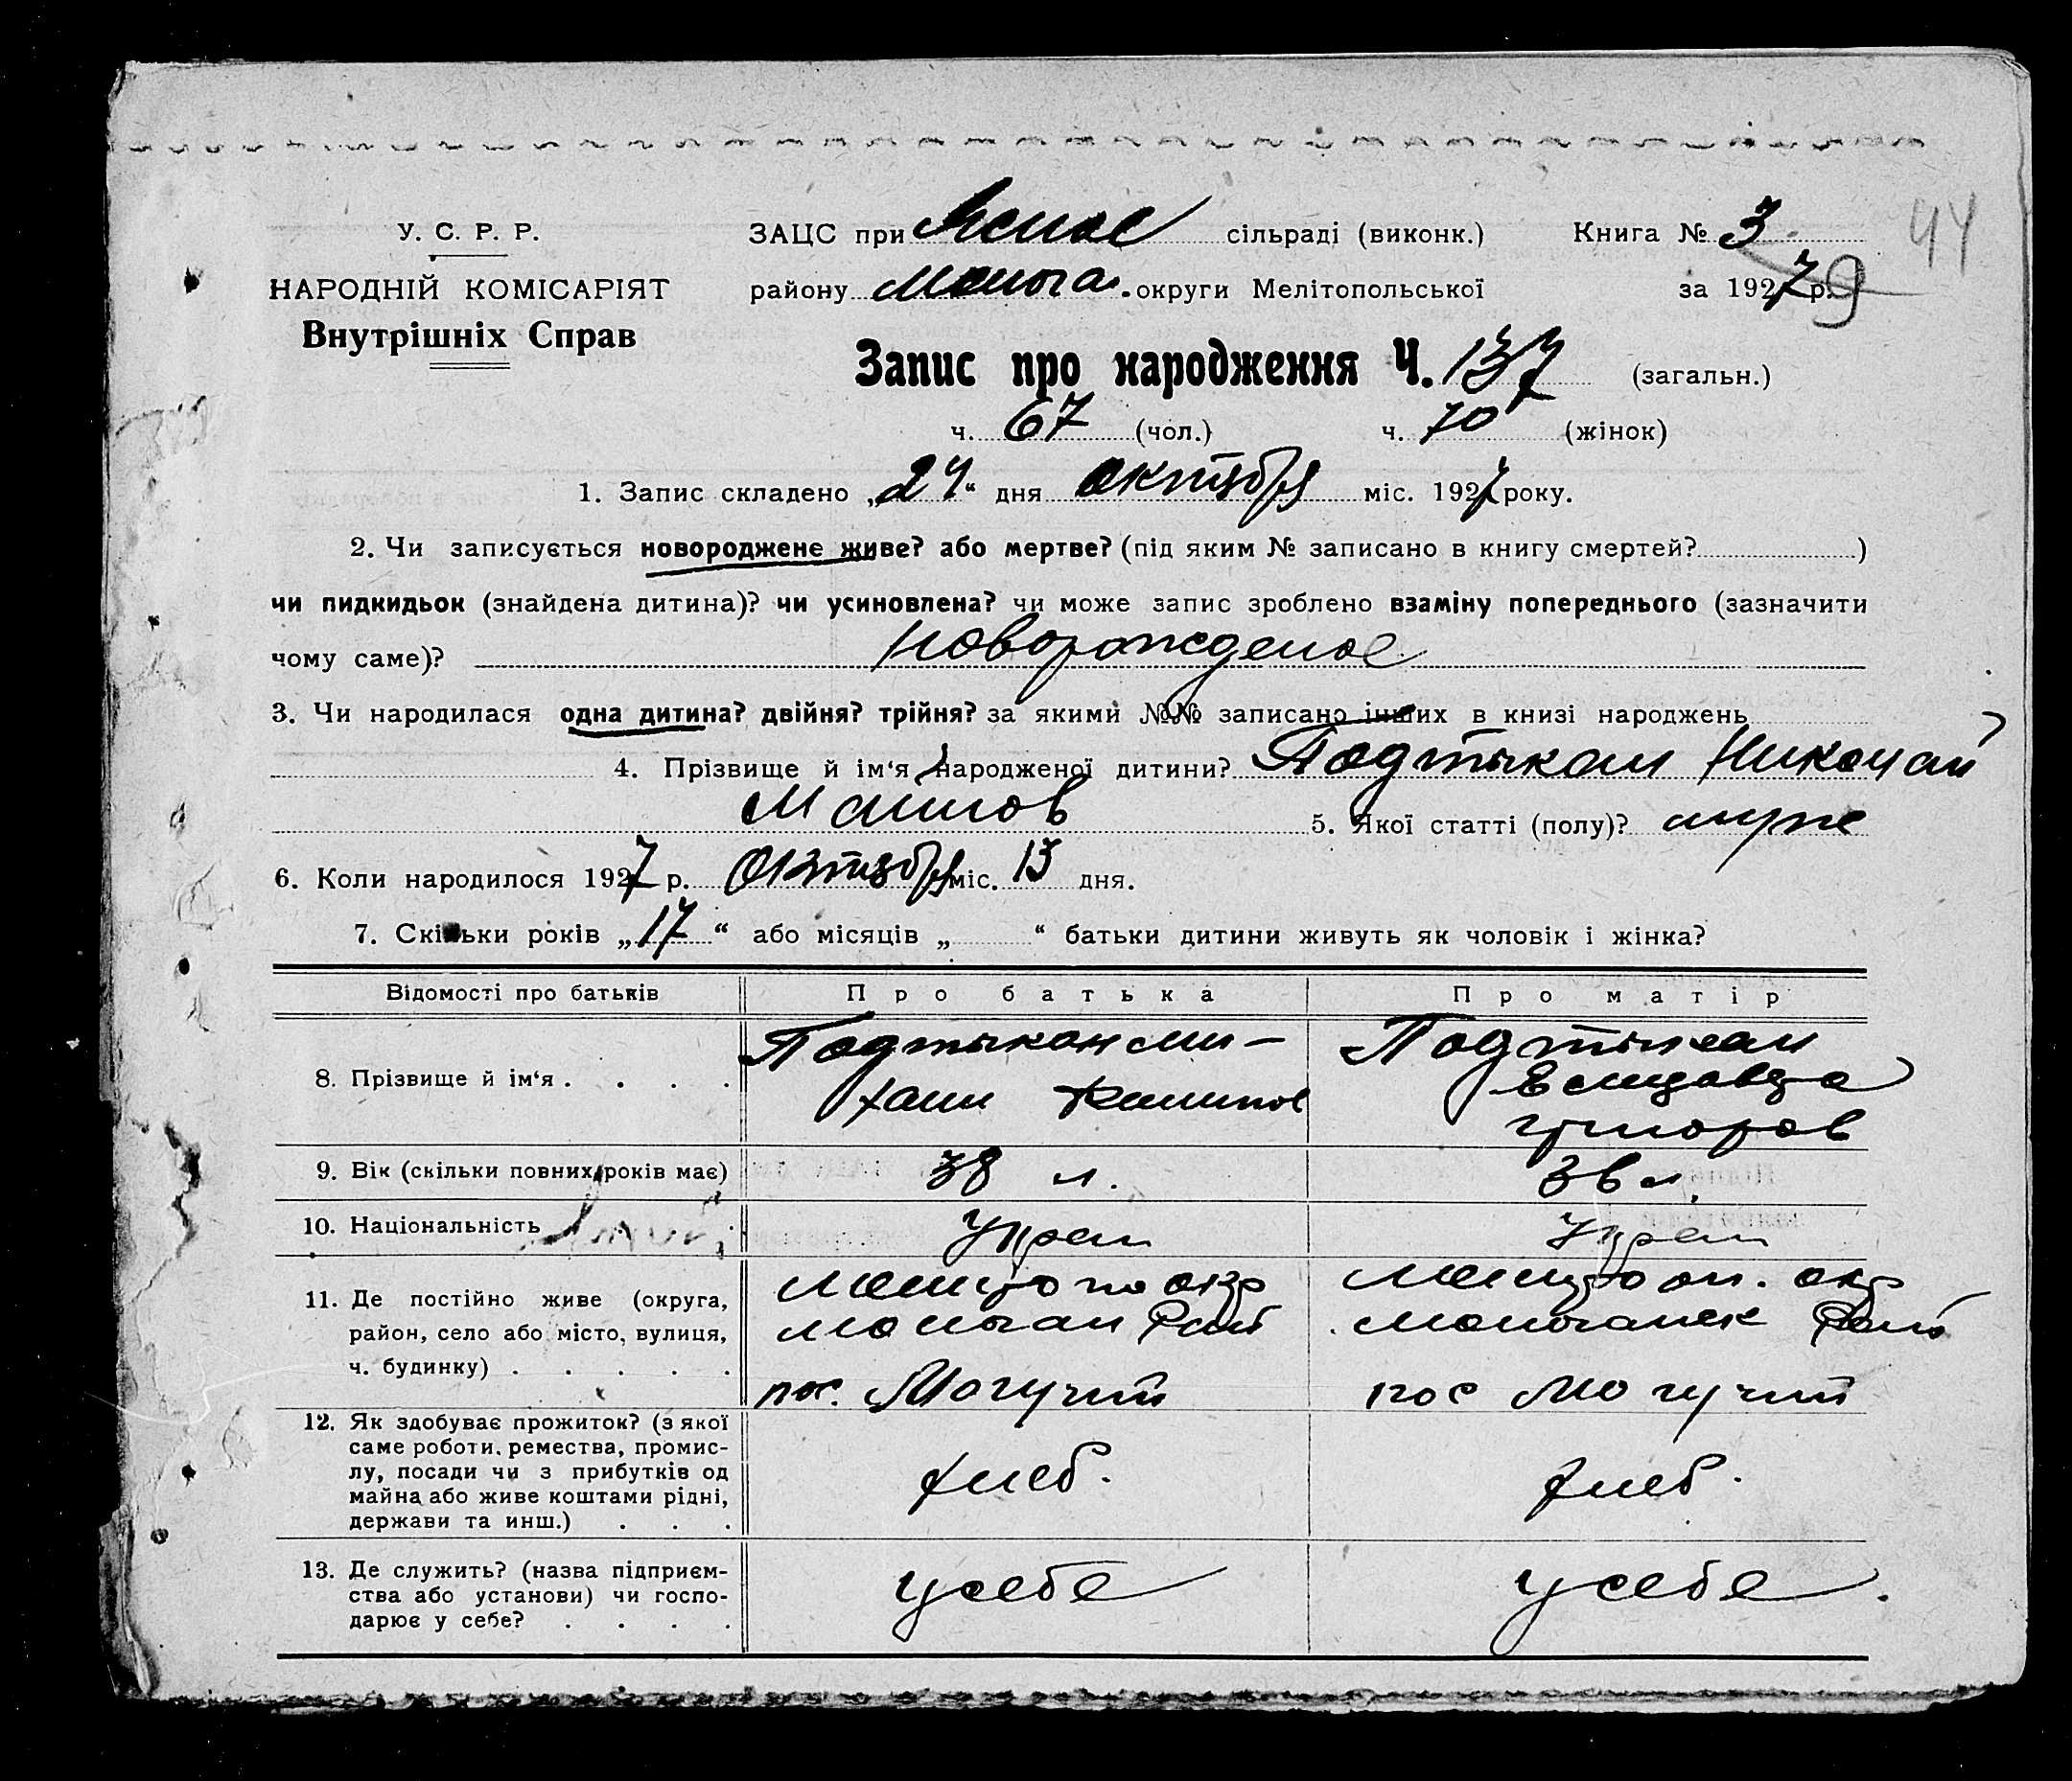 44
У. С. Р. Р.
НАРОДНІЙ КОМІСАРІЯТ
Внутрішніх Справ
ЗАЦС при Ясное сільраді (виконк.) Книга № 3
району округи Мелітопольської за 1927 р. 9
Запис про народження Ч. 137 (загальн.)
ч. 67 (чол.) ч. 70 (жінок)
1. Запис складено „24“ дня октября міс. 1927 року.
2. Чи записується новороджене живе? або мертве? (під яким № записано в книгу смертей? )
чи пидкидьок (знайдена дитина)? чи усиновлена? чи може запис зроблено взаміну попереднього (зазначити
чому саме)? новорожденое
3. Чи народилася одна дитина? двійня? трійня? за якими №№ записано інших в книзі народжень
4. Прізвище й ім‘я народженої дитини? Подтыкан Николай
5. Якої статті (полу)? муже
6. Коли народилося 1927 р. Октября міс. 13 дня.
7. Скільки років „17“ або місяців „ “ батьки дитини живуть як чоловік і жінка?
Відомості про батьків Про батька Про матір
8. Прізвище й ім‘я . . . . Подтыкан Ми-
хаил Филипов
Подтыкан
Елизавета
Григоров
9. Вік (скільки повних років має) 38 л. 36 л.
10. Національність Украи Украи
11. Де постійно живе (округа,
район, село або місто, вулиця,
ч. будинку) . . . . .
Мелитопо окр
Молочан Рай
пос. Могучий
Мелитоп. окр
Молочанск Рай
пос Могучий
12. Як здобуває прожиток? (з якої
саме роботи, ремества, промис-
лу, посади чи з прибутків од
майна або живе коштами рідні,
держави та инш.) . . .
хлеб. хлеб.
13. Де служить? (назва підприєм-
ства або установи) чи госпо-
дарює у себе? . . . .
у себе у себе.